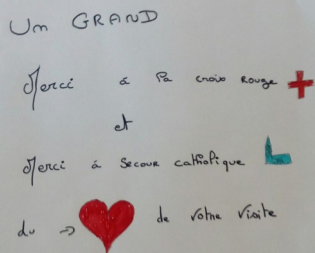 Un GRAND
Merci á la croix Rouge
et
Merci á Secour catholique
du → de votre visite